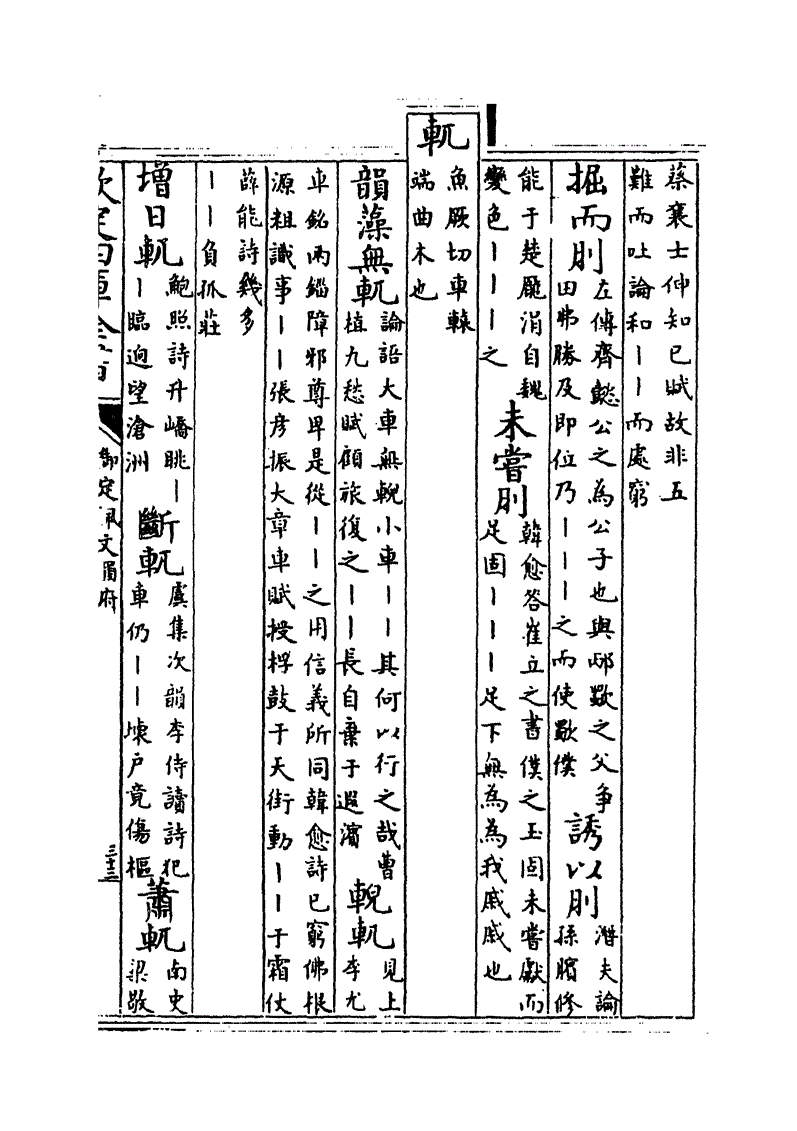 蔡襄士伸知已賦故非五
難而吐論和丨丨而處窮
掘而刖 左傳齊懿公之為公子也與邴歜之父爭
田弗勝及即位乃丨丨丨之而使歜僕
誘以刖 潛夫論
孫臏修
能于楚龐涓自魏
變色丨丨丨之
未嘗刖 韓愈答崔立之書僕之玉固未嘗獻而
足固丨丨丨足下無為為我戚戚也
軏
魚厥切車轅
端曲木也
韻藻無軏 論語大車無輗小車丨丨其何以行之哉曹
植九愁賦顧旅復之丨丨長自棄于遐濱
輗軏 見上
李尤
車銘兩鎦障邪尊卑是從丨丨之用信義所同韓愈詩已窮佛根
源粗識事丨丨張彥振大章車賦授桴鼓于天街動丨丨于霜仗
薛能詩幾多
丨丨負孤莊
增日軏 鮑照詩升嶠眺丨
丨臨迥望滄洲
斷軏 虞集次韻李侍讀詩犯
車仍丨丨堜戶竟傷樞
蕭軏 南史
梁敬
欽定四庫全書
御定佩文韻府
三十三